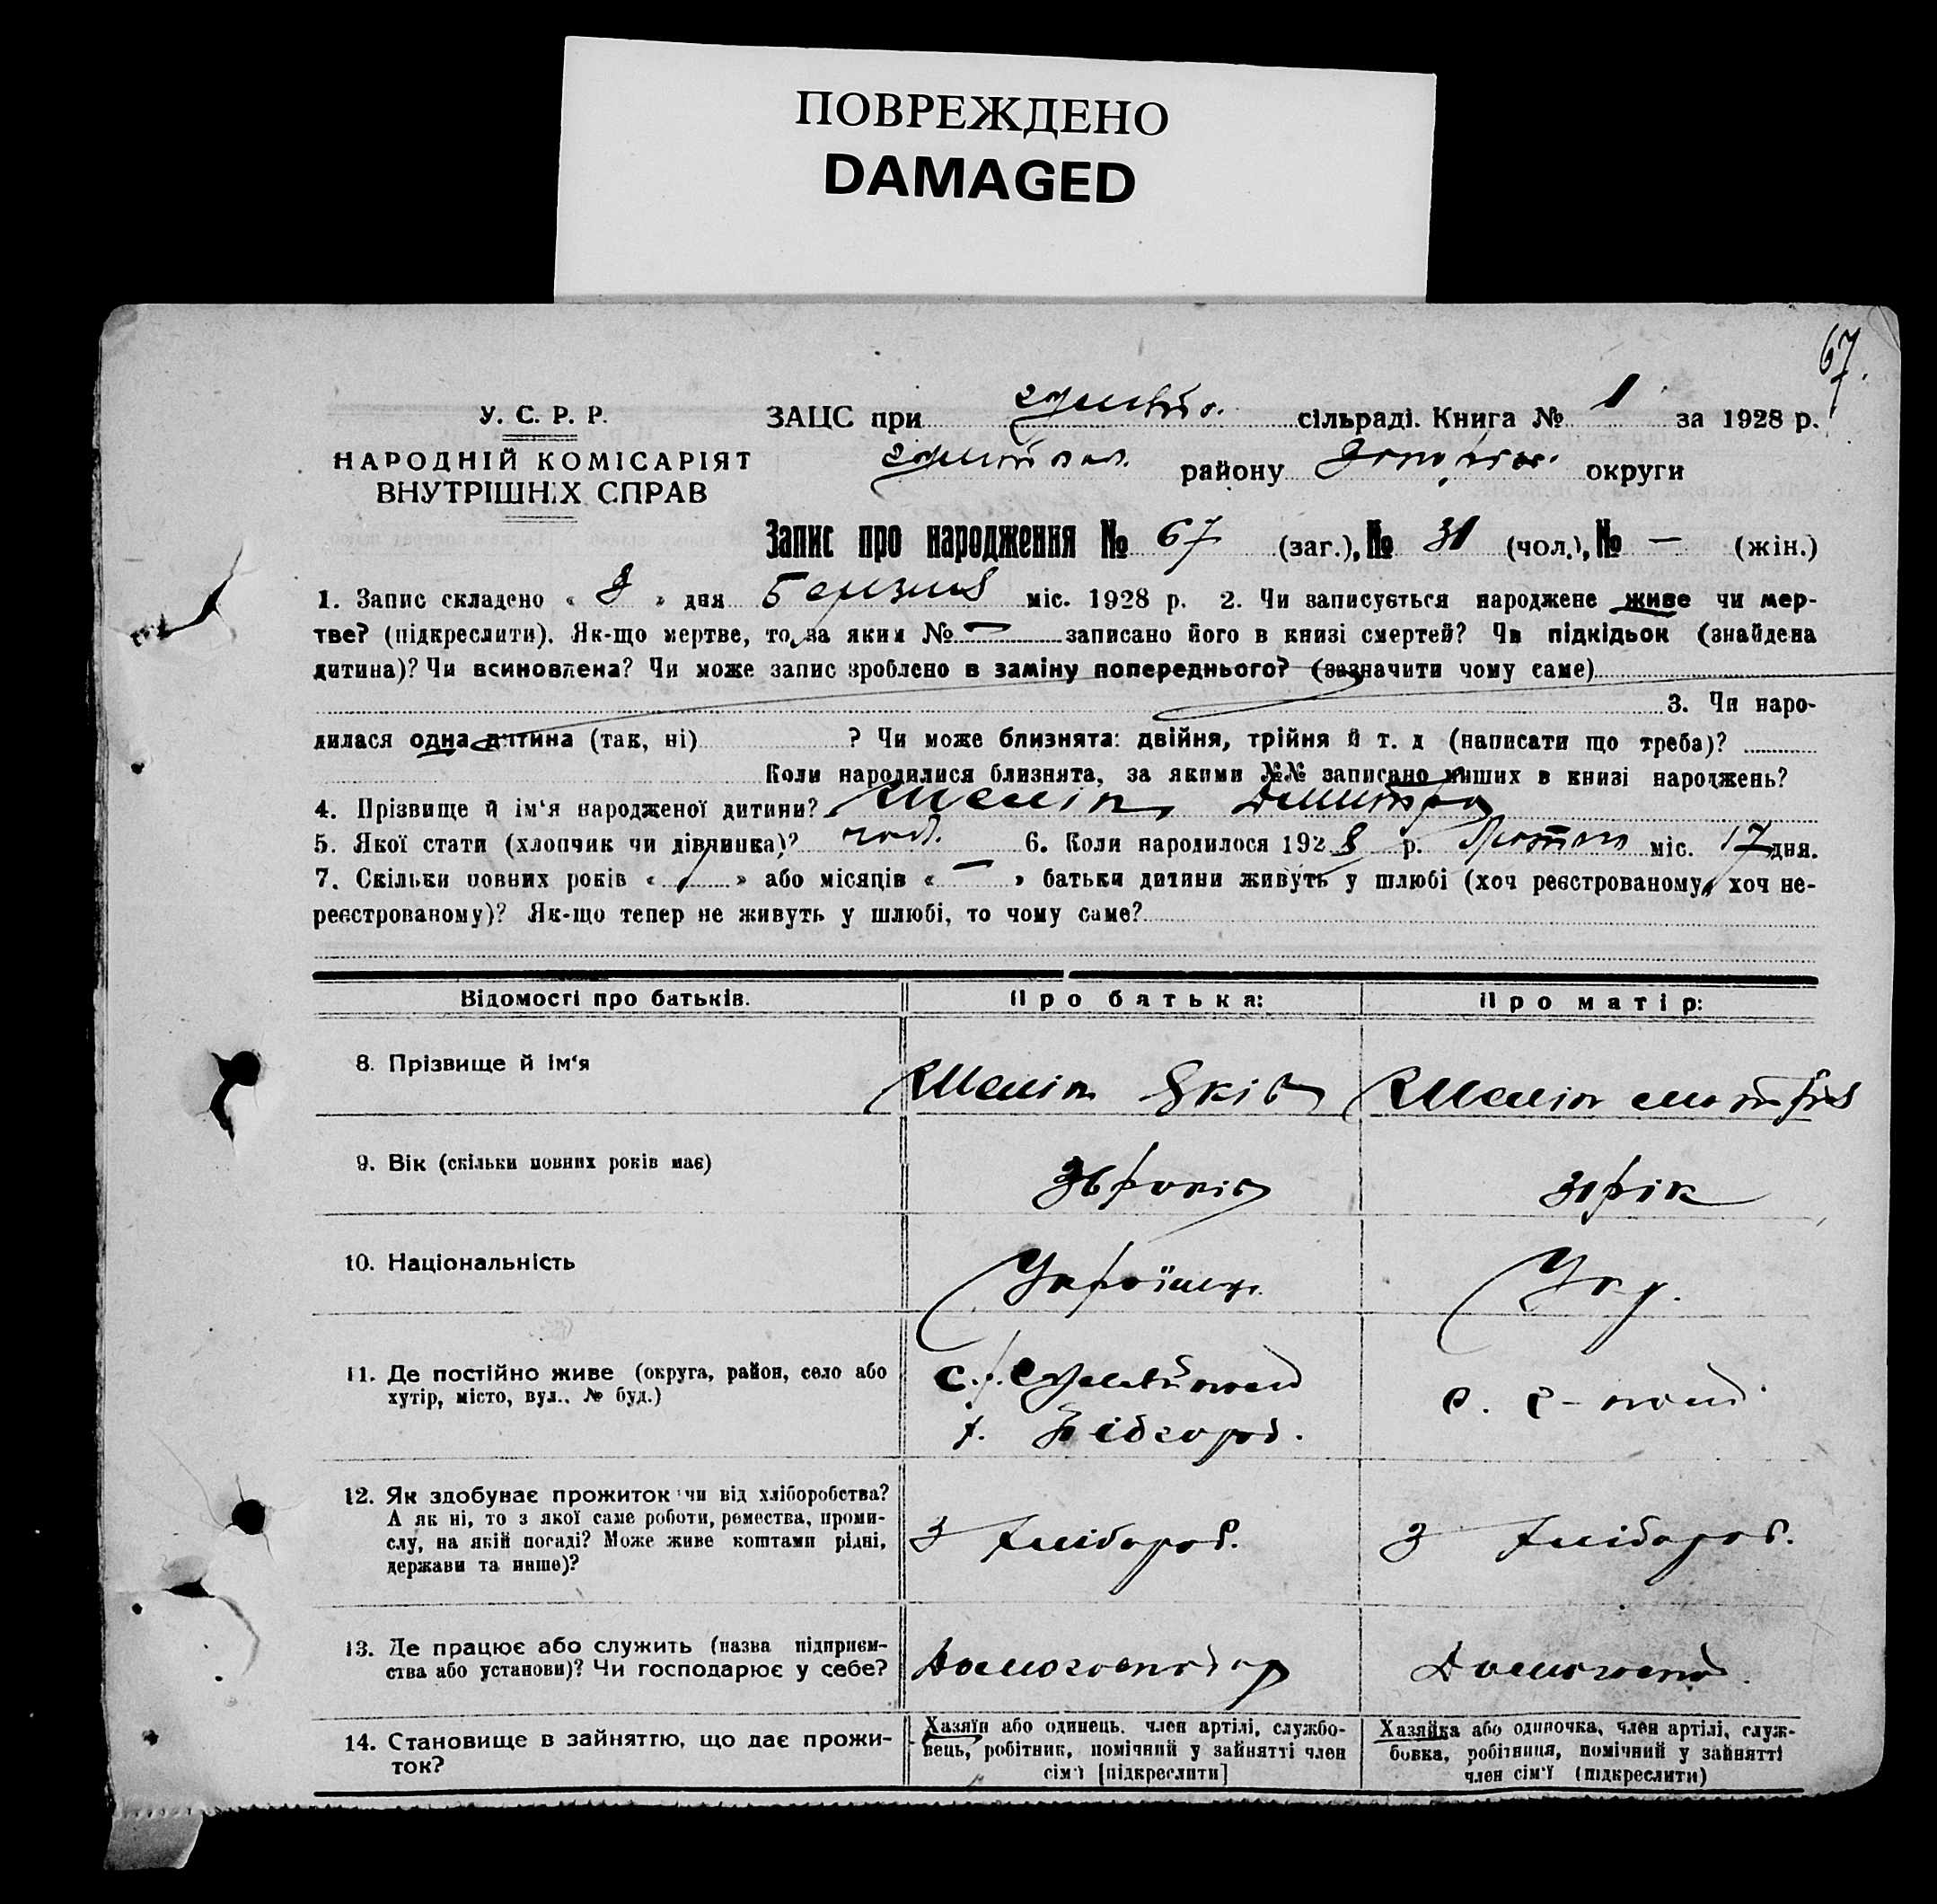 ПОВРЕЖДЕНО
DAMAGED
67.
У. С. Р. Р.
НАРОДНІЙ КОМІСАРІЯТ
ВНУТРІШНІХ СПРАВ
ЗАЦС при сільраді. Книга № 1 за 1928 р.
району округи
Запис про народження № 67 (заг.), № 31 (чол.), № — (жін.)
1. Запис складено « 8 » дня Березня міс. 1928 р. 2. Чи записується народжене живе чи мер-
тве? (підкреслити). Як-що мертве, то за яким № — записано його в книзі смертей? Чи підкідьок (знайдена
дитина)? Чи всиновлена? Чи може запис зроблено в заміну попереднього? (зазначити чому саме)
3. Чи наро-
дилася одна дитина (так, ні) ? Чи може близнята: двійня, трійня й т. д (написати що треба)?
Коли народилися близнята, за якими №№ записано инших в книзі народжень?
4. Прізвище й ім‘я народженої дитини? Дмитро
5. Якої статі (хлопчик чи дівчинка)? 6. Коли народилося 1928 р. Лютого міс. 17 дня.
7. Скільки повних років « » або місяців « — » батьки дитини живуть у шлюбі (хоч реєстрованому, хоч не-
реєстрованому)? Як-що тепер не живуть у шлюбі, то чому саме?
Відомості про батьків. Про батька: Про матір:
8. Прізвище й ім‘я Яків
9. Вік (скільки повних років має) 36 років 31 рік
10. Національність Українец. Укр.
11. Де постійно живе (округа, район, село або
хутір, місто, вул.. № буд.)
12. Як здобуває прожиток чи від хліборобства?
А як ні, то з якої саме роботи, ремества, проми-
слу, на якій посаді? Може живе коштами рідні,
держави та инше)?
З хлібороб. З хлібороб.
13. Де працює або служить (назва підприєм-
ства або установи)? Чи господарює у себе?
Домогосподар Домогоспод.
14. Становище в зайняттю, що дає прожи-
ток?
Хазяїн або одинець. член артілі, службо-
вець, робітник, помічний у зайнятті член
сім‘ї [підкреслити]
Хазяйка або одиночка, член артілі, служ-
бовка, робітниця, помічний у зайнятті
член сім‘ї (підкреслити)